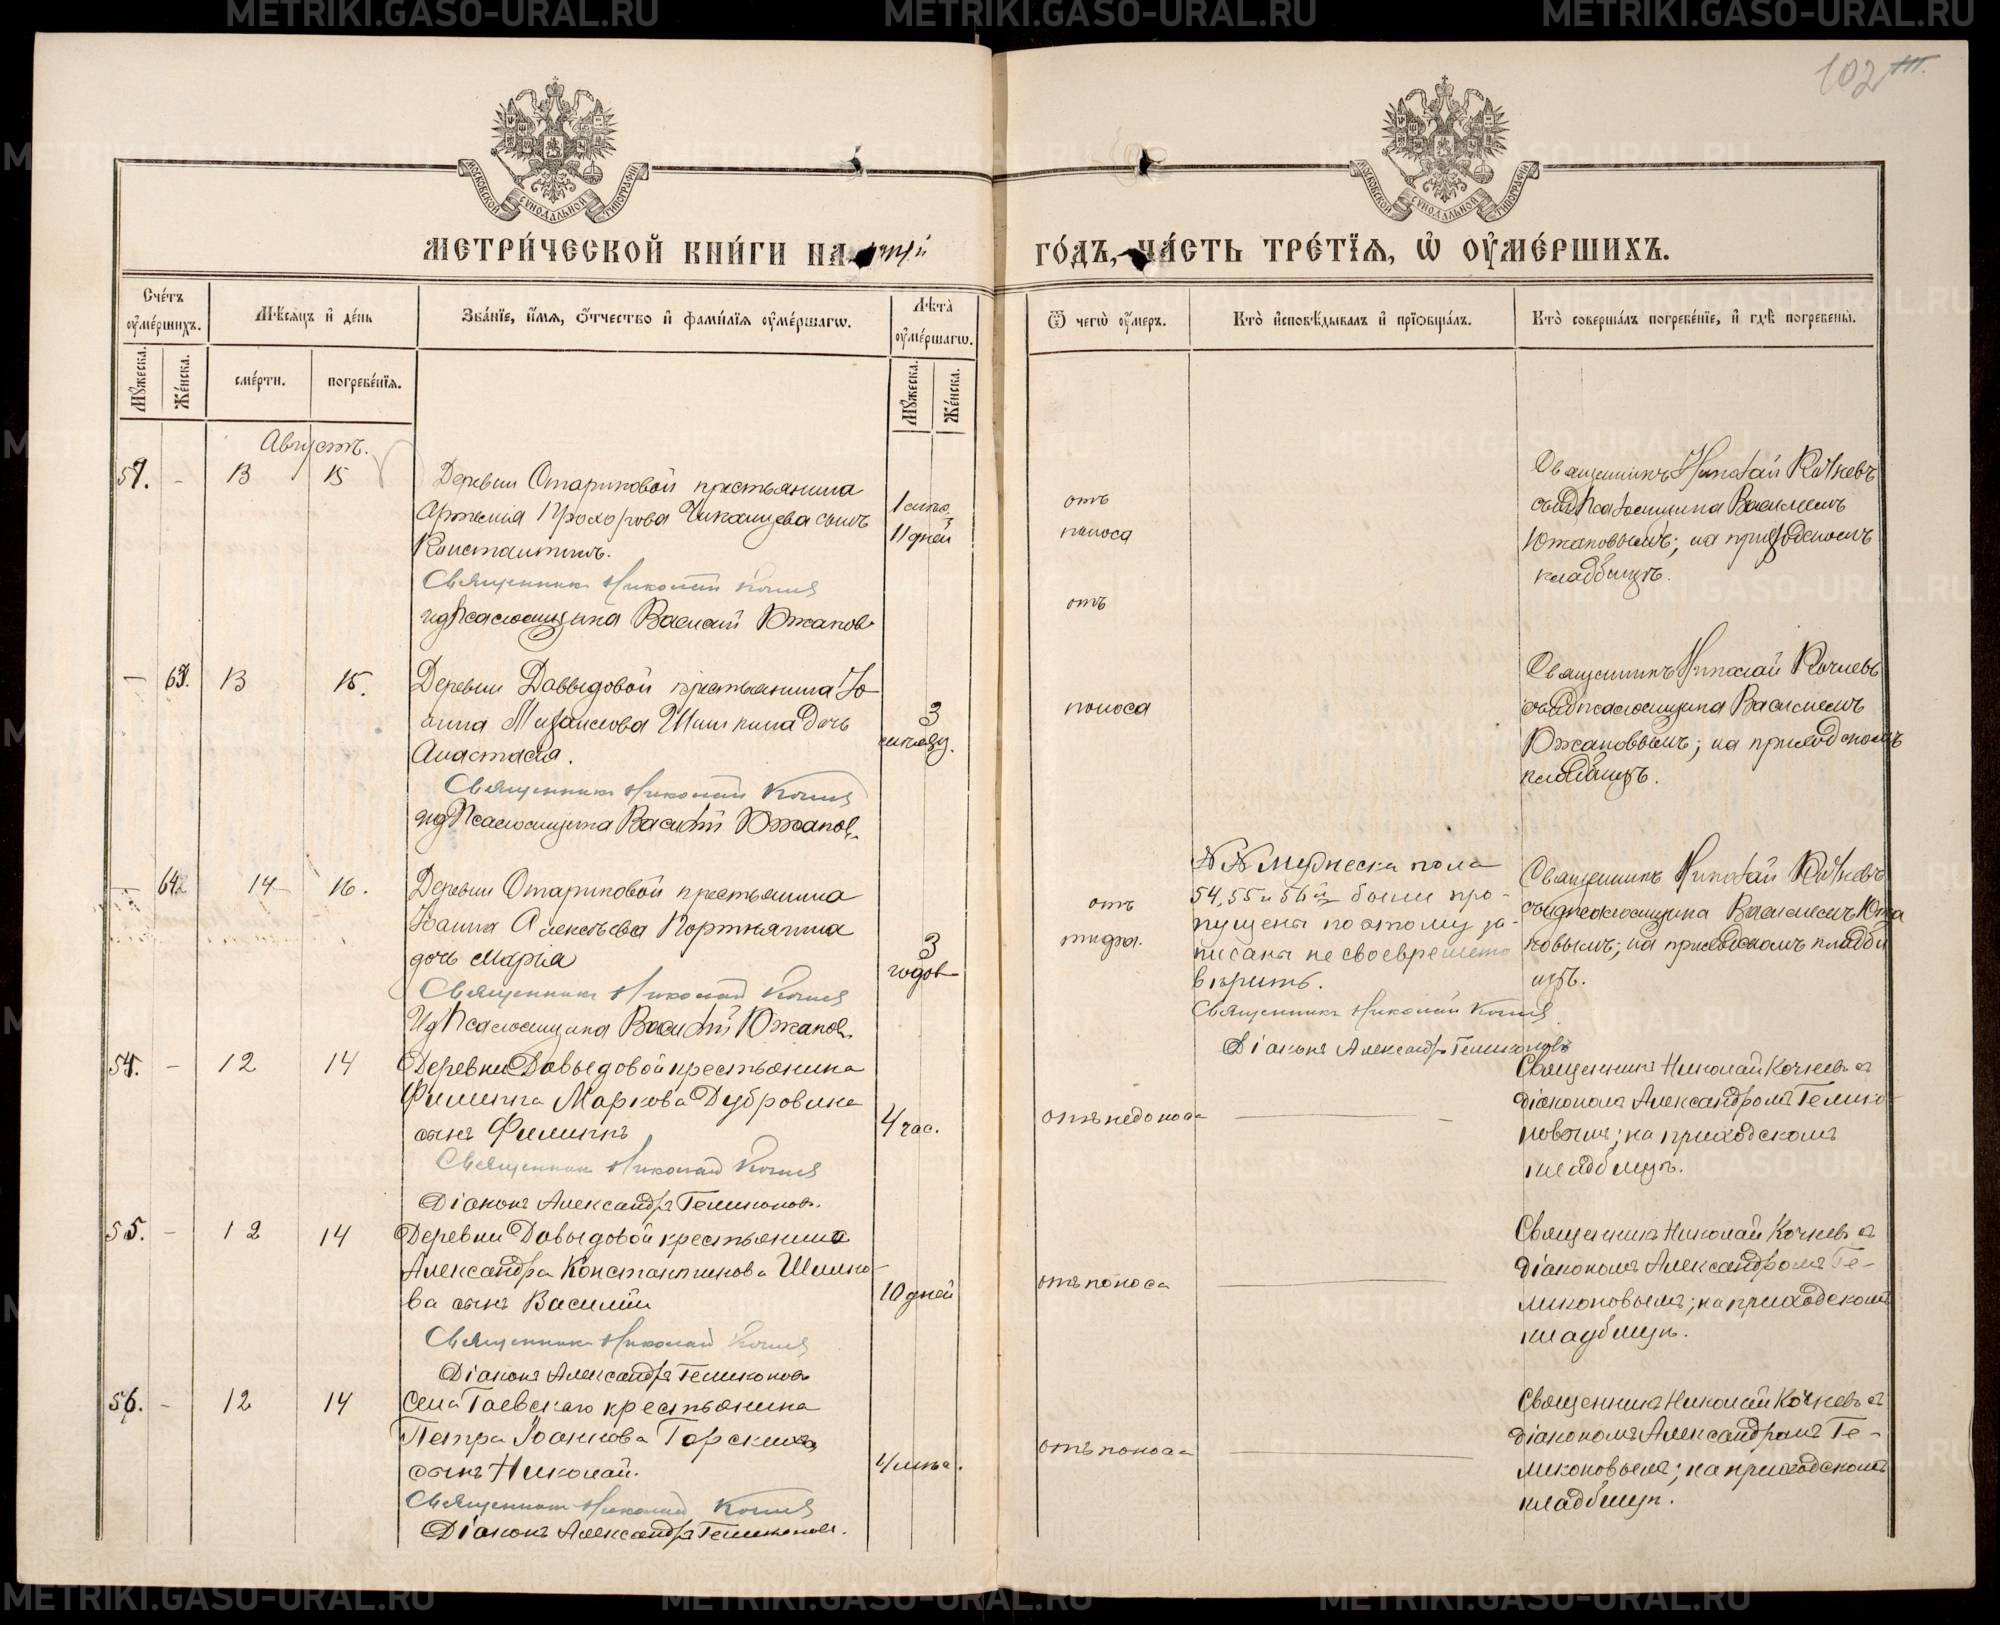 METRIKI.GASO-URAL.RU
102
МОСКОВСКОЙ СѴНОДАЛЬНОЙ ТИПОГРАФІИ
МОСКОВСКОЙ СѴНОДАЛЬНОЙ ТИПОГРАФІИ
МЕТРИ́ЧЕСКОЙ КНИ́ГИ НА
ГО́ДЪ, ЧА́СТЬ ТРЕ́ТІѦ, Ѡ҆ ОУ҆МЕ́РШИХЪ.
Сче́тъ оу҆ме́ршихъ.
Мꙋ́жеска.
Же́нска.
Мѣ́сѧцъ и҆ де́нь
сме́рти.
погребе́нїѧ.
Зва́нїе, и҆́мѧ, ѻ҆́тчество и҆ фами́лїѧ оу҆ме́ршагѡ.
Лѣ́та оу҆ме́ршагѡ.
Мꙋ́жеска.
Же́нска.
Ѿ чегѡ̀ оу҆́меръ.
Кто̀ и҆сповѣ́дывалъ и҆ прїѡбща́лъ.
Кто̀ соверша́лъ погребе́нїе, и҆ гдѣ̀ погребены̀.
Августъ.
57. - 13 15
Деревни Стариковой крестьянина
Артемія Прохорова Чипанцева сынъ
Константинъ.
Священникъ Николай Кочнев
ид Псаломщика Василий Южаков
11 дней
отъ
поноса
Священникъ Николай Кочневъ
съ ид Псаломщика Василіемъ
Южаковымъ; на приходскомъ
кладбищѣ.
отъ
— 63. 13 15.
Деревни Давыдовой крестьянина Іо
анна Михаилова Шишкина дочь
Анастасія.
Священникъ Николай Кочнев
ид Псаломщика Василій Южаков.
3
мѣсяц.
поноса
Священникъ Николай Кочневъ
съ ид псаломщика Василіемъ
Южаковымъ; на приходскомъ
кладбищѣ.
— 64. 14 16.
Деревни Стариковой крестьянина
Іоанна Алексѣева Портнягина
дочь Марія
Священникъ Николай Кочнев
Ид Псаломщика Василій Южаков.
3
годов
отъ
тифа.
№№ мужеска пола
54, 55 и 56й были про-
пущены поэтому за-
писаны не своевременно
вѣрить.
Священникъ Николай Кочнев
Діаконъ Александръ Геликоновъ
Священникъ Николай Кочневъ
съ ид псаломщика Василіемъ Южа
ковымъ; на приходскомъ кладби
щѣ.
54. - 12 14
Деревни Давыдовой крестьянина
Филиппа Маркова Дубровина
сынъ Филиппъ
Священникъ Николай Кочнев
Діаконъ Александръ Геликоновъ.
4 час.
отъ недоноса
Священникъ Николай Кочневъ съ
діакономъ Александромъ Гелико-
новымъ; на приходскомъ
кладбищѣ.
55. - 12 14
Деревни Давыдовой крестьянина
Александра Константинова Шишки-
ва сынъ Василій
Священникъ Николай Кочнев
Діаконъ Александръ Геликоновъ
10 дней
отъ поноса
Священникъ Николай Кочневъ съ
діакономъ Александромъ Ге-
ликоновымъ; на приходскомъ
кладбищѣ.
56. - 12 14
Села Гаевскаго крестьянина
Петра Іоаннова Горскихъ
сынъ Николай.
Священникъ Николай Кочнев
Діаконъ Александръ Геликоновъ.
отъ поноса
Священникъ Николай Кочневъ съ
діакономъ Александромъ Ге-
ликоновымъ; на приходскомъ
кладбищѣ.